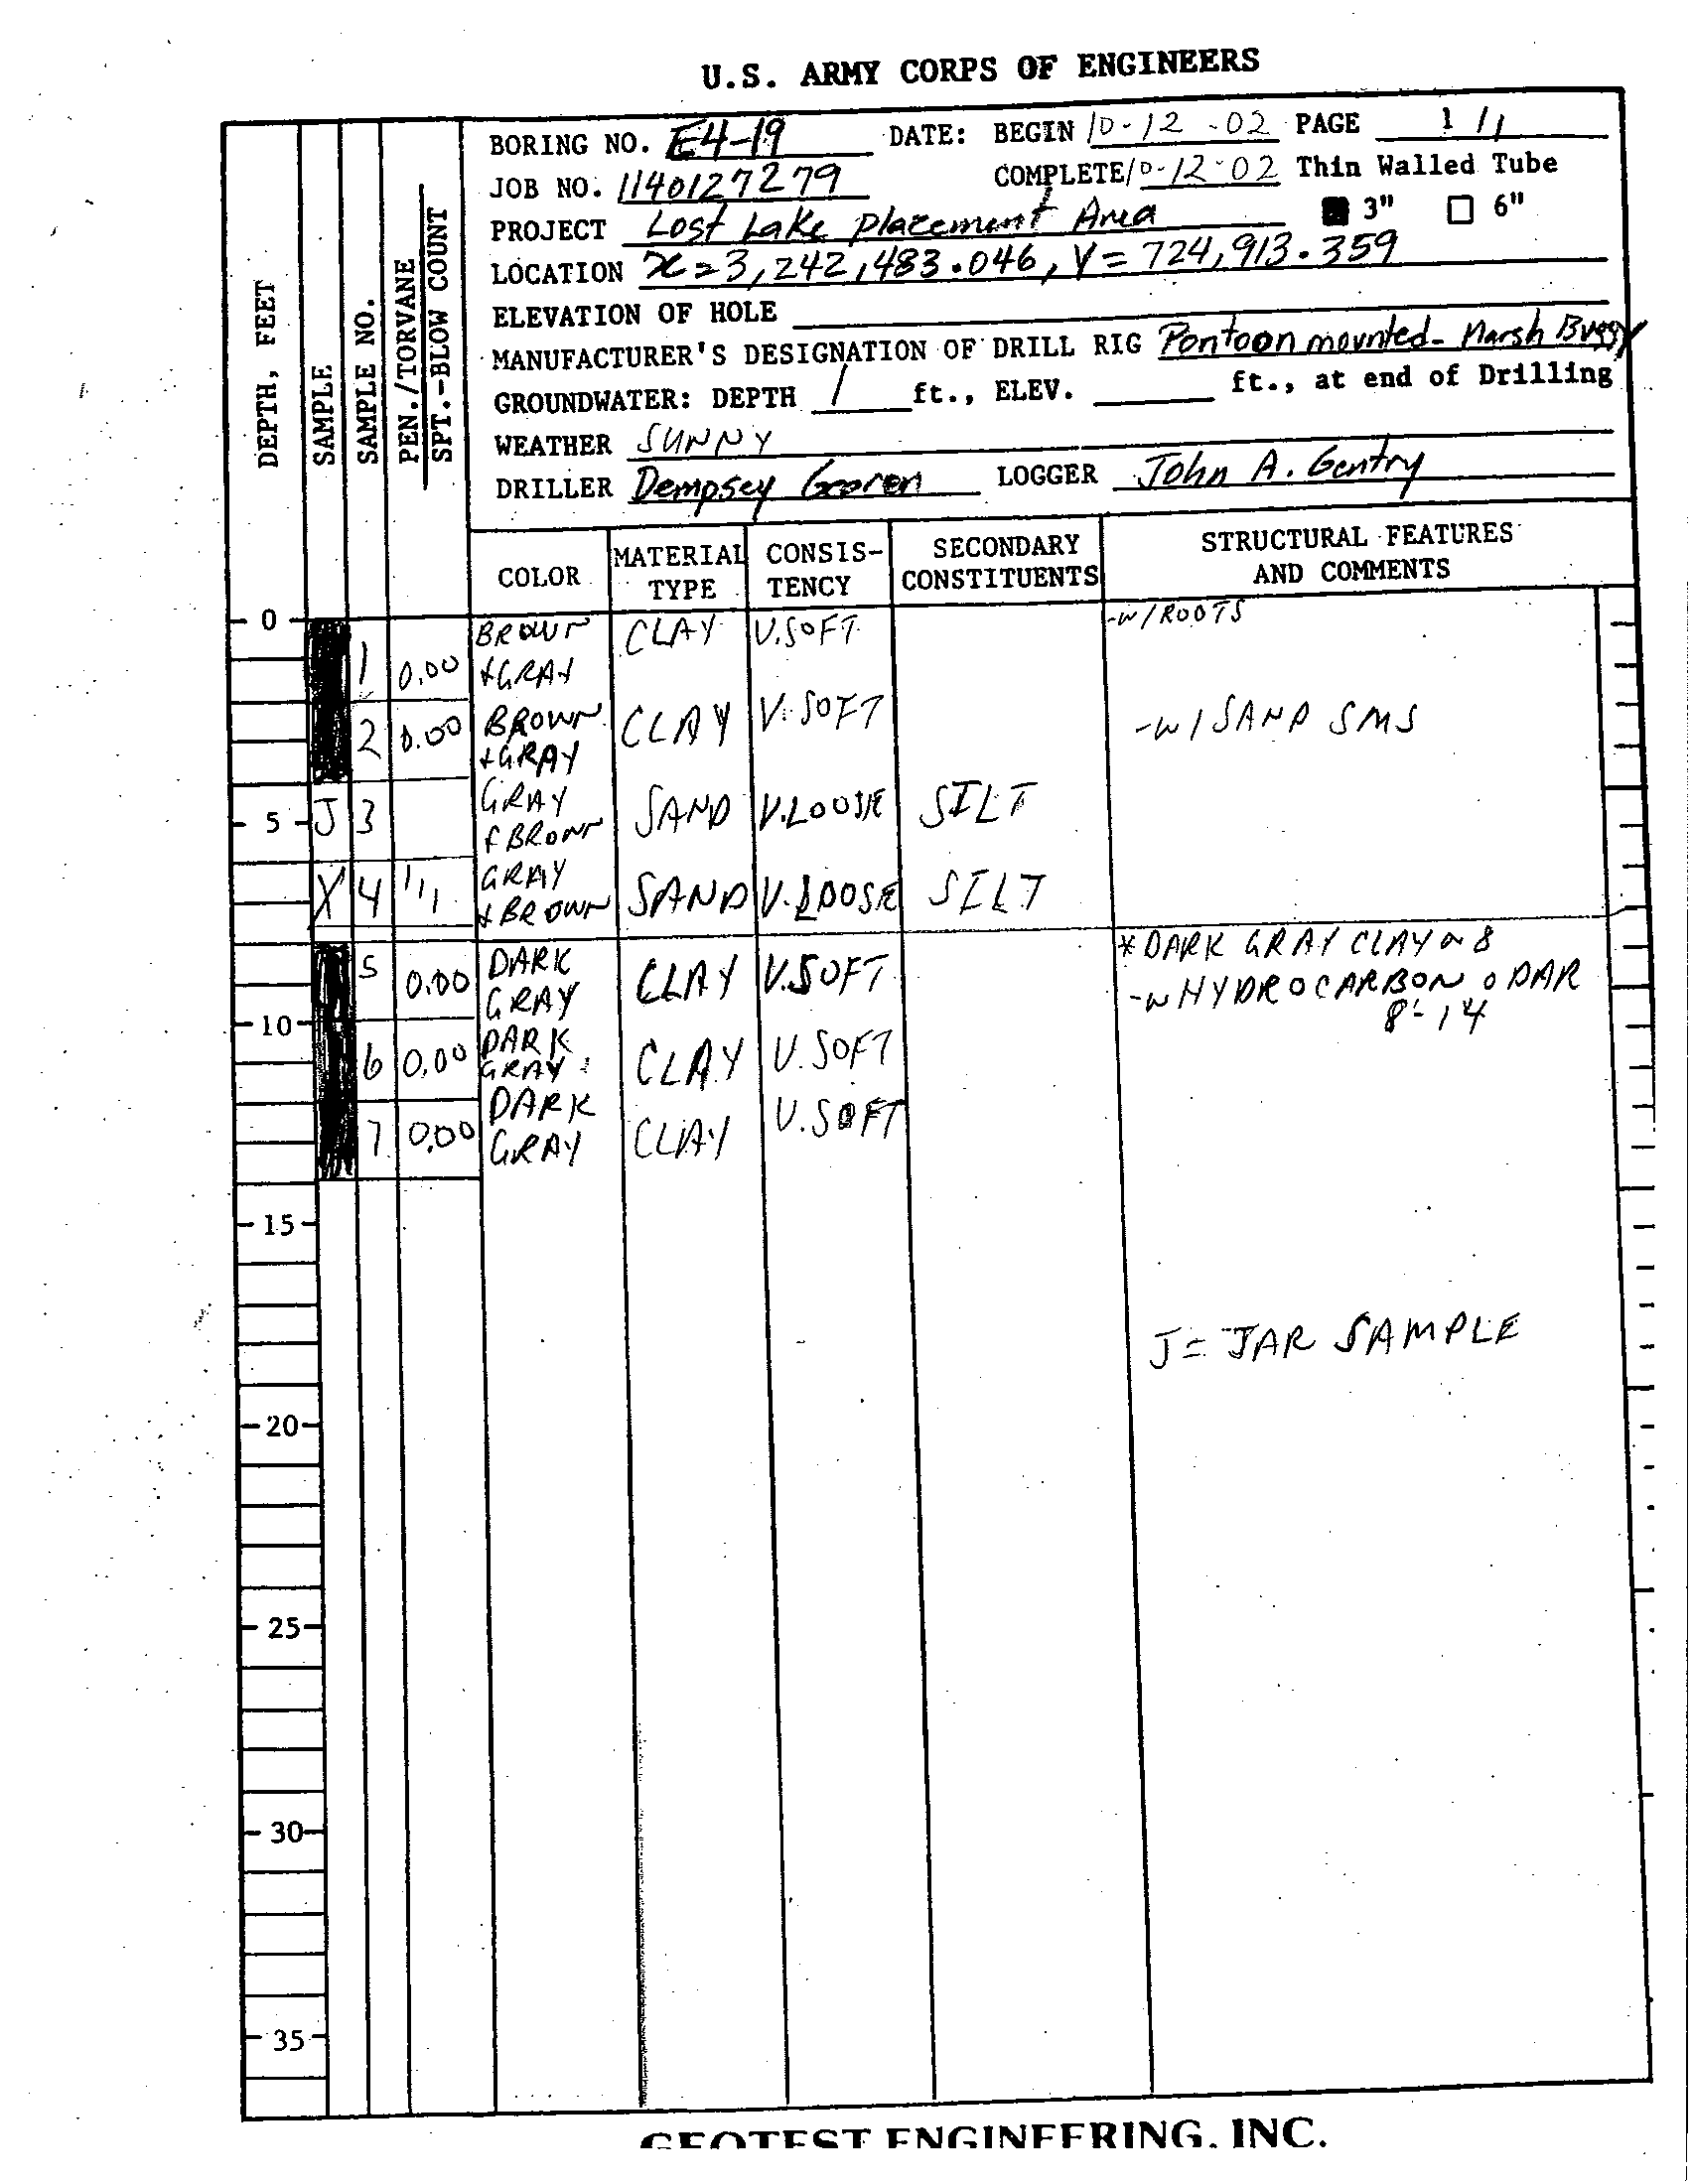 U.S. ARMY CORPS OF ENGINEERS
BORING NO. E4-19 DATE: BEGIN 10-12-02 PAGE 1/1
JOB NO. 1140127279 COMPLETE 10-12-02 Thin Walled Tube
PROJECT Lost Lake Placement Area 3" 6"
LOCATION X=3,242,483.046, Y=724,913.359
ELEVATION OF HOLE
MANUFACTURER'S DESIGNATION OF DRILL RIG Pontoon mounted- Marsh Buggy
GROUNDWATER: DEPTH 1 ft., ELEV. ft., at end of Drilling
WEATHER SUNNY
DRILLER Dempsey LOGGER John A. Gentry
DEPTH, FEET
SAMPLE
SAMPLE NO.
PEN./TORVANE
SPT.-BLOW COUNT
COLOR MATERIAL TYPE CONSIS-TENCY SECONDARY CONSTITUENTS STRUCTURAL FEATURES AND COMMENTS
0 BROWN CLAY V.SOFT -W/ROOTS
1 0.00 +GRAY
2 0.00 BROWN CLAY V.SOFT -W/SAND SMS
+GRAY
GRAY
5 J 3 & BROWN SAND V.LOOSE SILT
X 4 1/1/1 GRAY SAND V.LOOSE SILT
+BROWN
5 0.00 DARK CLAY V.SOFT *DARK GRAY CLAY @ 8
GRAY -W HYDROCARBON ODAR
10 8'-14
6 0.00 DARK CLAY V.SOFT
GRAY
DARK
7 0.00 GRAY CLAY V.SOFT
15
J= JAR SAMPLE
20
25
30
35
GEOTEST ENGINEERING, INC.